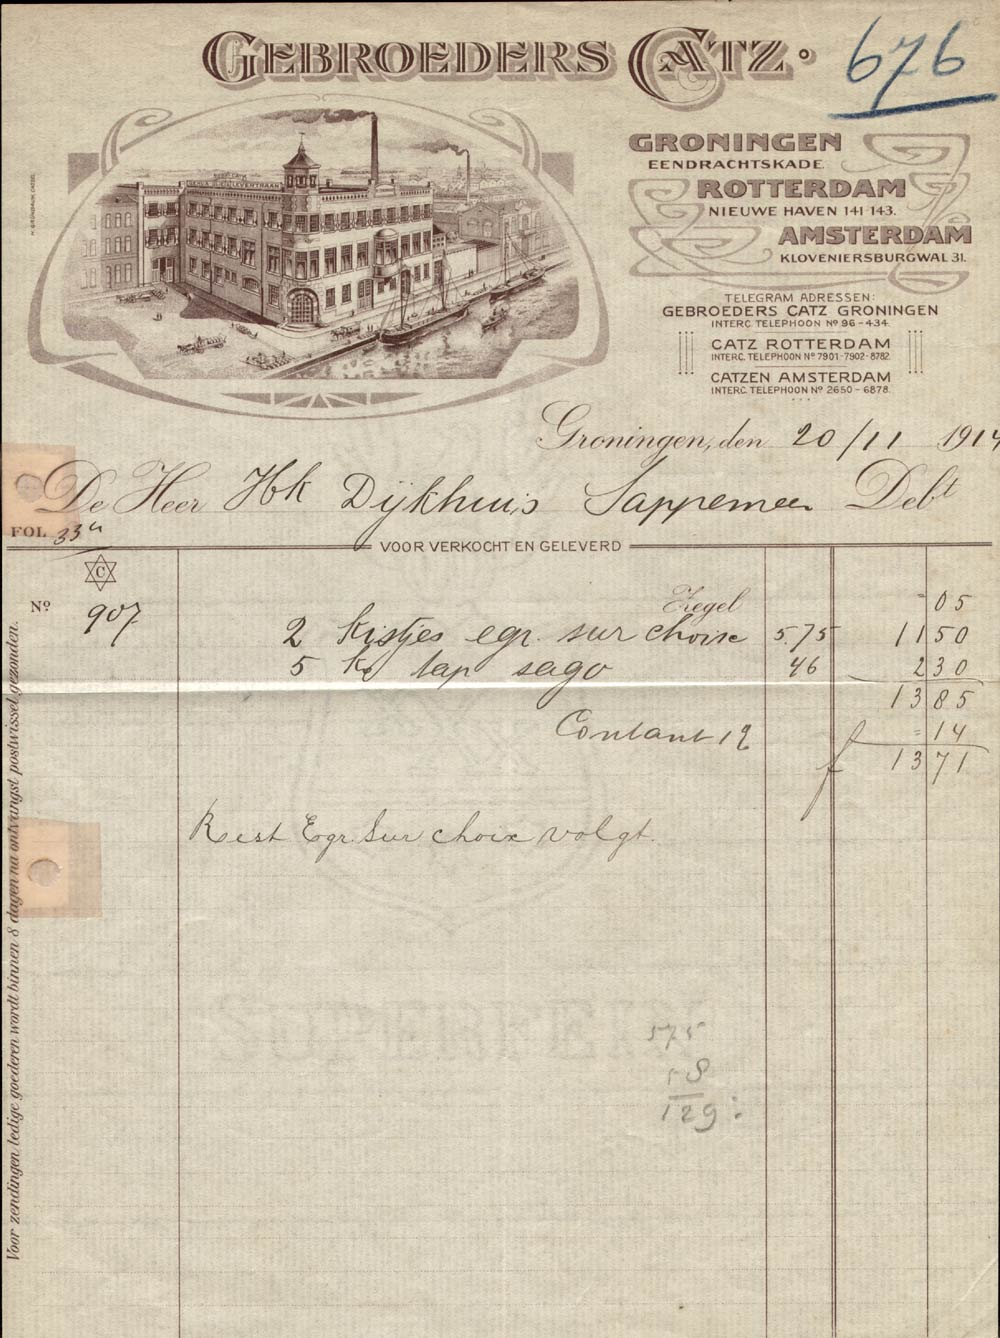 GEBROEDERS CATZ.
676
GRONINGEN
EENDRACHTSKADE
ROTTERDAM
NIEUWE HAVEN 141-143.
AMSTERDAM
KLOVENIERSBURGWAL 31.
TELEGRAM ADRESSEN:
GEBROEDERS CATZ GRONINGEN
INTERC. TELEPHOON Nº 96-434.
CATZ ROTTERDAM
INTERC. TELEPHOON Nº 7901-7902-8782.
CATZEN AMSTERDAM
INTERC. TELEPHOON Nº 2650-6878.
Groningen, den 20/11 1914
De Heer Hk Dijkhuis Sappemeer Debt
FOL 33
VOOR VERKOCHT EN GELEVERD
C
Zegel - 05
Nº 907
2 kistjes egr. sur choix 5.75 11 50
5 Ko tap sago 46 2 30
13 85
Contant 1% - 14
f 13 71
Rest Egr. Sur choix volgt.
SUPERFEIN
575
58
129:
Voor zendingen ledige goederen wordt binnen 8 dagen na ontvangst postwissel gezonden.